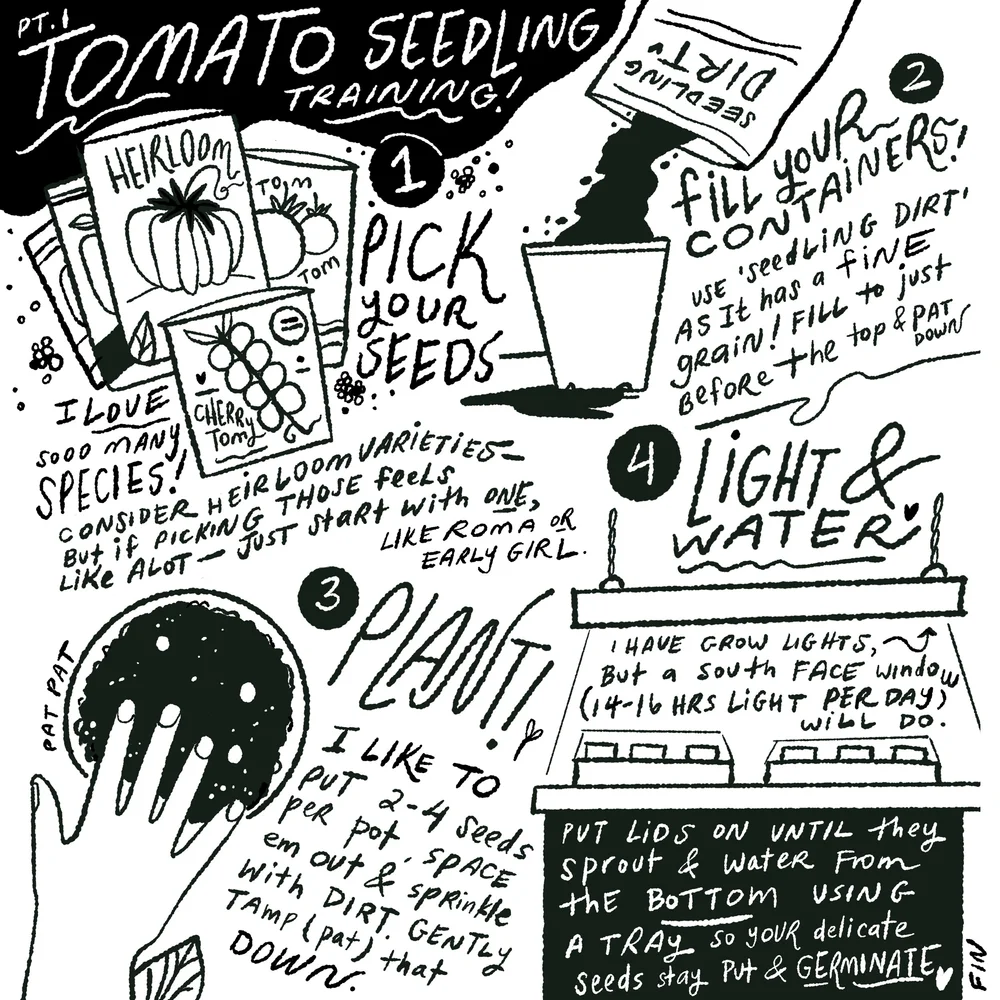 PT. 1
TOMATO SEEDLING
TRAINING!
HEIRLOOM
TOM
TOM
CHERRY
TOMS
1
PICK
YOUR
SEEDS
I LOVE
SOOO MANY
SPECIES!
CONSIDER HEIRLOOM VARIETIES—
BUT if PICKING THOSE feels
LIKE ALOT — JUST START WITH ONE,
LIKE ROMA OR
EARLY GIRL.
SEEDLING
DIRT
2
fILL YOUR
CONTAINERS!
USE 'SeedLING DIRT'
AS It has a fINE
grain! FILL to just
Before the top & PAT
DOWN
3
PLANT!
PAT PAT
I LIKE TO
PUT 2-4 Seeds
per pot. SPACE
em out & sprinkle
with DIRT. GENTLY
TAMP (pat) that
DOWN.
4
LiGHT &
WATER
I HAVE GROW LIGHTS,
But a South FACE window
(14-16 HRS LiGHT PER DAY)
WiLL DO.
PUT LiDS ON UNTIL they
sprout & water From
the BOTTOM USING
A TRAY so YOUR delicate
seeds stay Put & GERMINATE
FIN